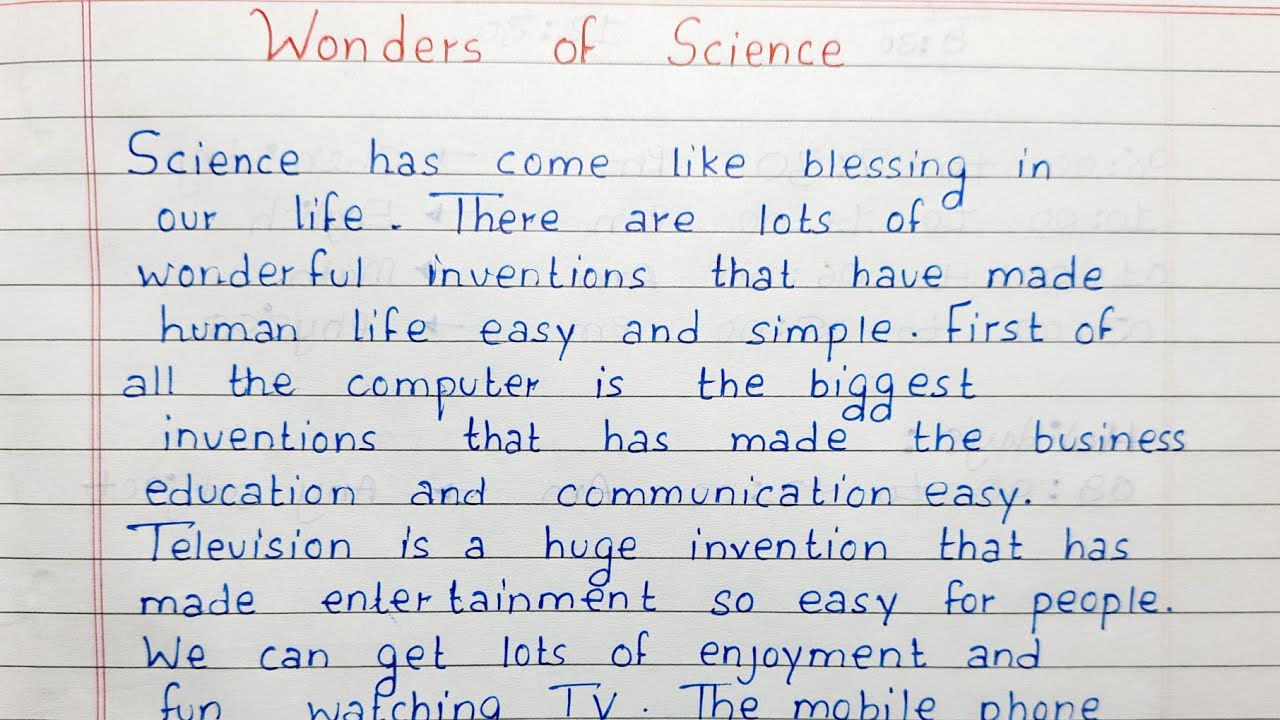 Wonders of Science
Science has come like blessing in
our life. There are lots of
wonderful inventions that have made
human life easy and simple. First of
all the computer is the biggest
inventions that has made the business
education and communication easy.
Television is a huge invention that has
made entertainment so easy for people.
We can get lots of enjoyment and
fun watching TV. The mobile phone